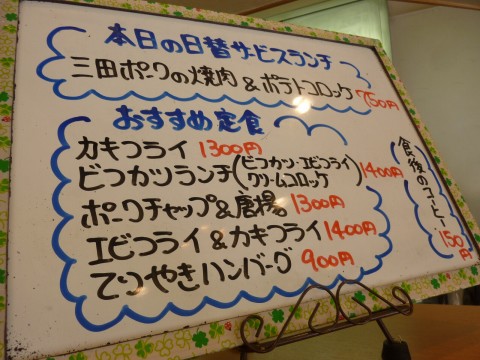 本日の日替サービスランチ
三田ポークの焼肉&ポテトコロッケ 750円
おすすめ定食
カキフライ 1300円
ビフカツランチ(ビフカツ・エビフライ クリームコロッケ) 1400円
ポークチャップ&唐揚 1300円
エビフライ&カキフライ 1400円
てりやきハンバーグ 900円
食後のコーヒー 150円